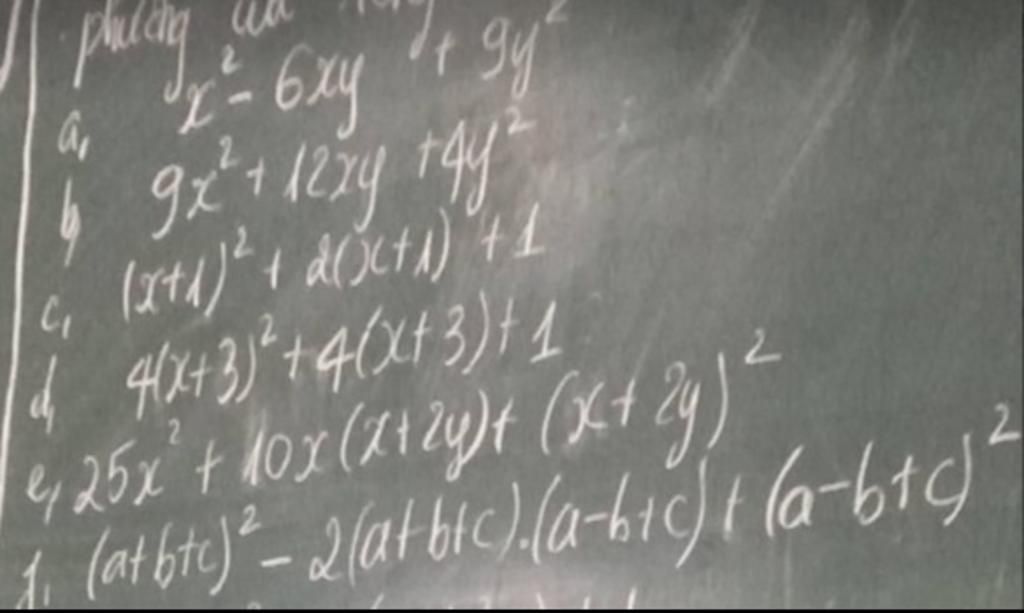 phương của
a, x² - 6xy + 9y²
b, 9x² + 12xy + 4y²
c, (x+1)² + 2(x+1) + 1
d, 4(x+3)² + 4(x+3) + 1
e, 25x² + 10x(x+2y) + (x+2y)²
f, (a+b+c)² - 2(a+b+c).(a-b+c) + (a-b+c)²